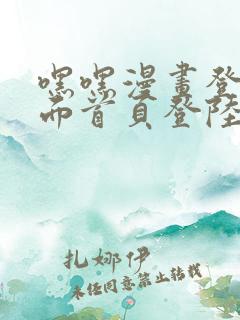 嘿嘿漫畫登
面首頁登陸
扎娜伊
未经同意禁止转载